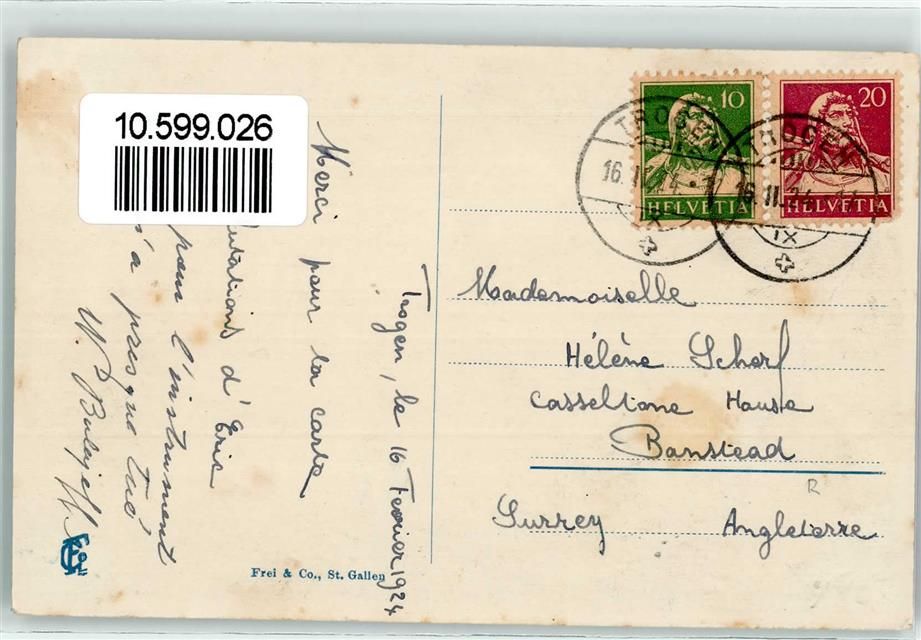 10.599.026
Trogen, le 16 Fevrier 1924
Merci pour la carte
d'Eric
pour l'instrument
m'a presque tué
W.
Frei & Co., St. Gallen
10
HELVETIA
20
HELVETIA
TROGEN
IX
TROGEN
16.II.24
IX
Mademoiselle
Hélène Scharf
Casseltone House
Banstead
Surrey Angleterre
R